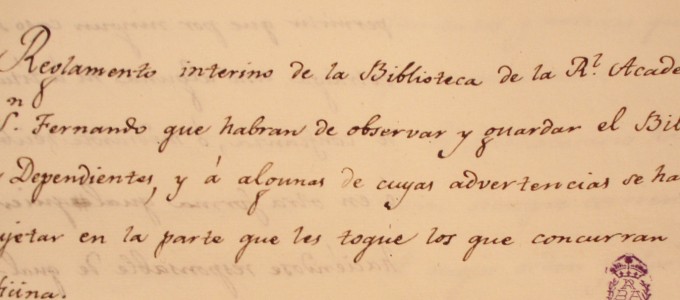 Reglamento interino de la Biblioteca de la Rl. Acade
Sn. Fernando que habran de observar y guardar el Bib
Dependientes, y á algunas de cuyas advertencias se ha
jetar en la parte que les toque los que concurran
ficina.